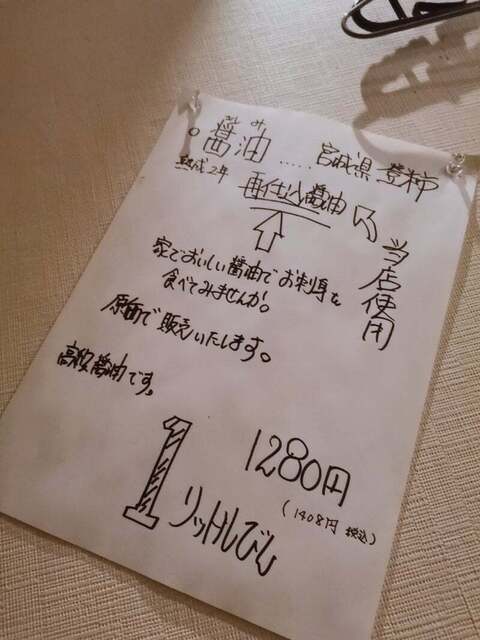 。醤油…… 宮城県 登米市
熟成2年 再仕込醤油
当店使用
家でおいしい醤油でお刺身を
食べてみませんか。
原価で販売いたします。
高級醤油です。
1280円
(1408円 税込)
1リットルびん